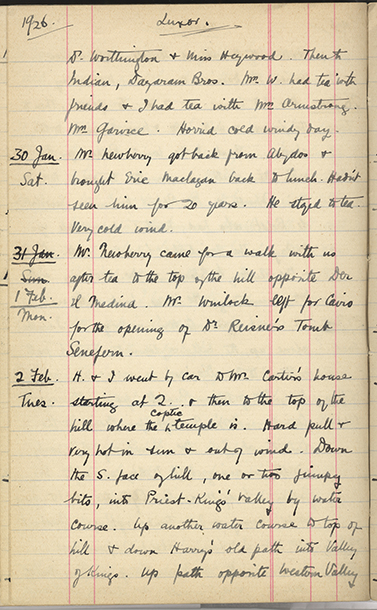 1926. Luxor.
Dr. Worthington & Miss Heywood. Then to
Indian, Dayaram Bros. Mr. W. had tea with
friends & I had tea with Mrs Armstrong.
Mrs Garvice. Horrid cold windy day.
30 Jan. Mr. Newberry got back from Abydos &
Sat. brought Eric Maclagan back to lunch. Hadn't
seen him for 20 years. He stayed to tea.
Very cold wind.
31 Jan. Mr. Newberry came for a walk with us
Sun. after tea to the top of the hill opposite Der
1 Feb. el Medina. Mr. Winlock left for Cairo
Mon. for the opening of Dr. Reisner's Tomb
Seneferu.
2 Feb. H. & I went by car to Mr. Carter's house
Tues. starting at 2. & then to the top of the
hill where the coptic temple is. Hard pull &
very hot in sun & out of wind. Down
the S. face of hill, one or two jumpy
bits, into Priest-Kings' Valley by water
course. Up another water course to top of
hill & down Harry's old path into Valley
of Kings. Up path opposite Western Valley